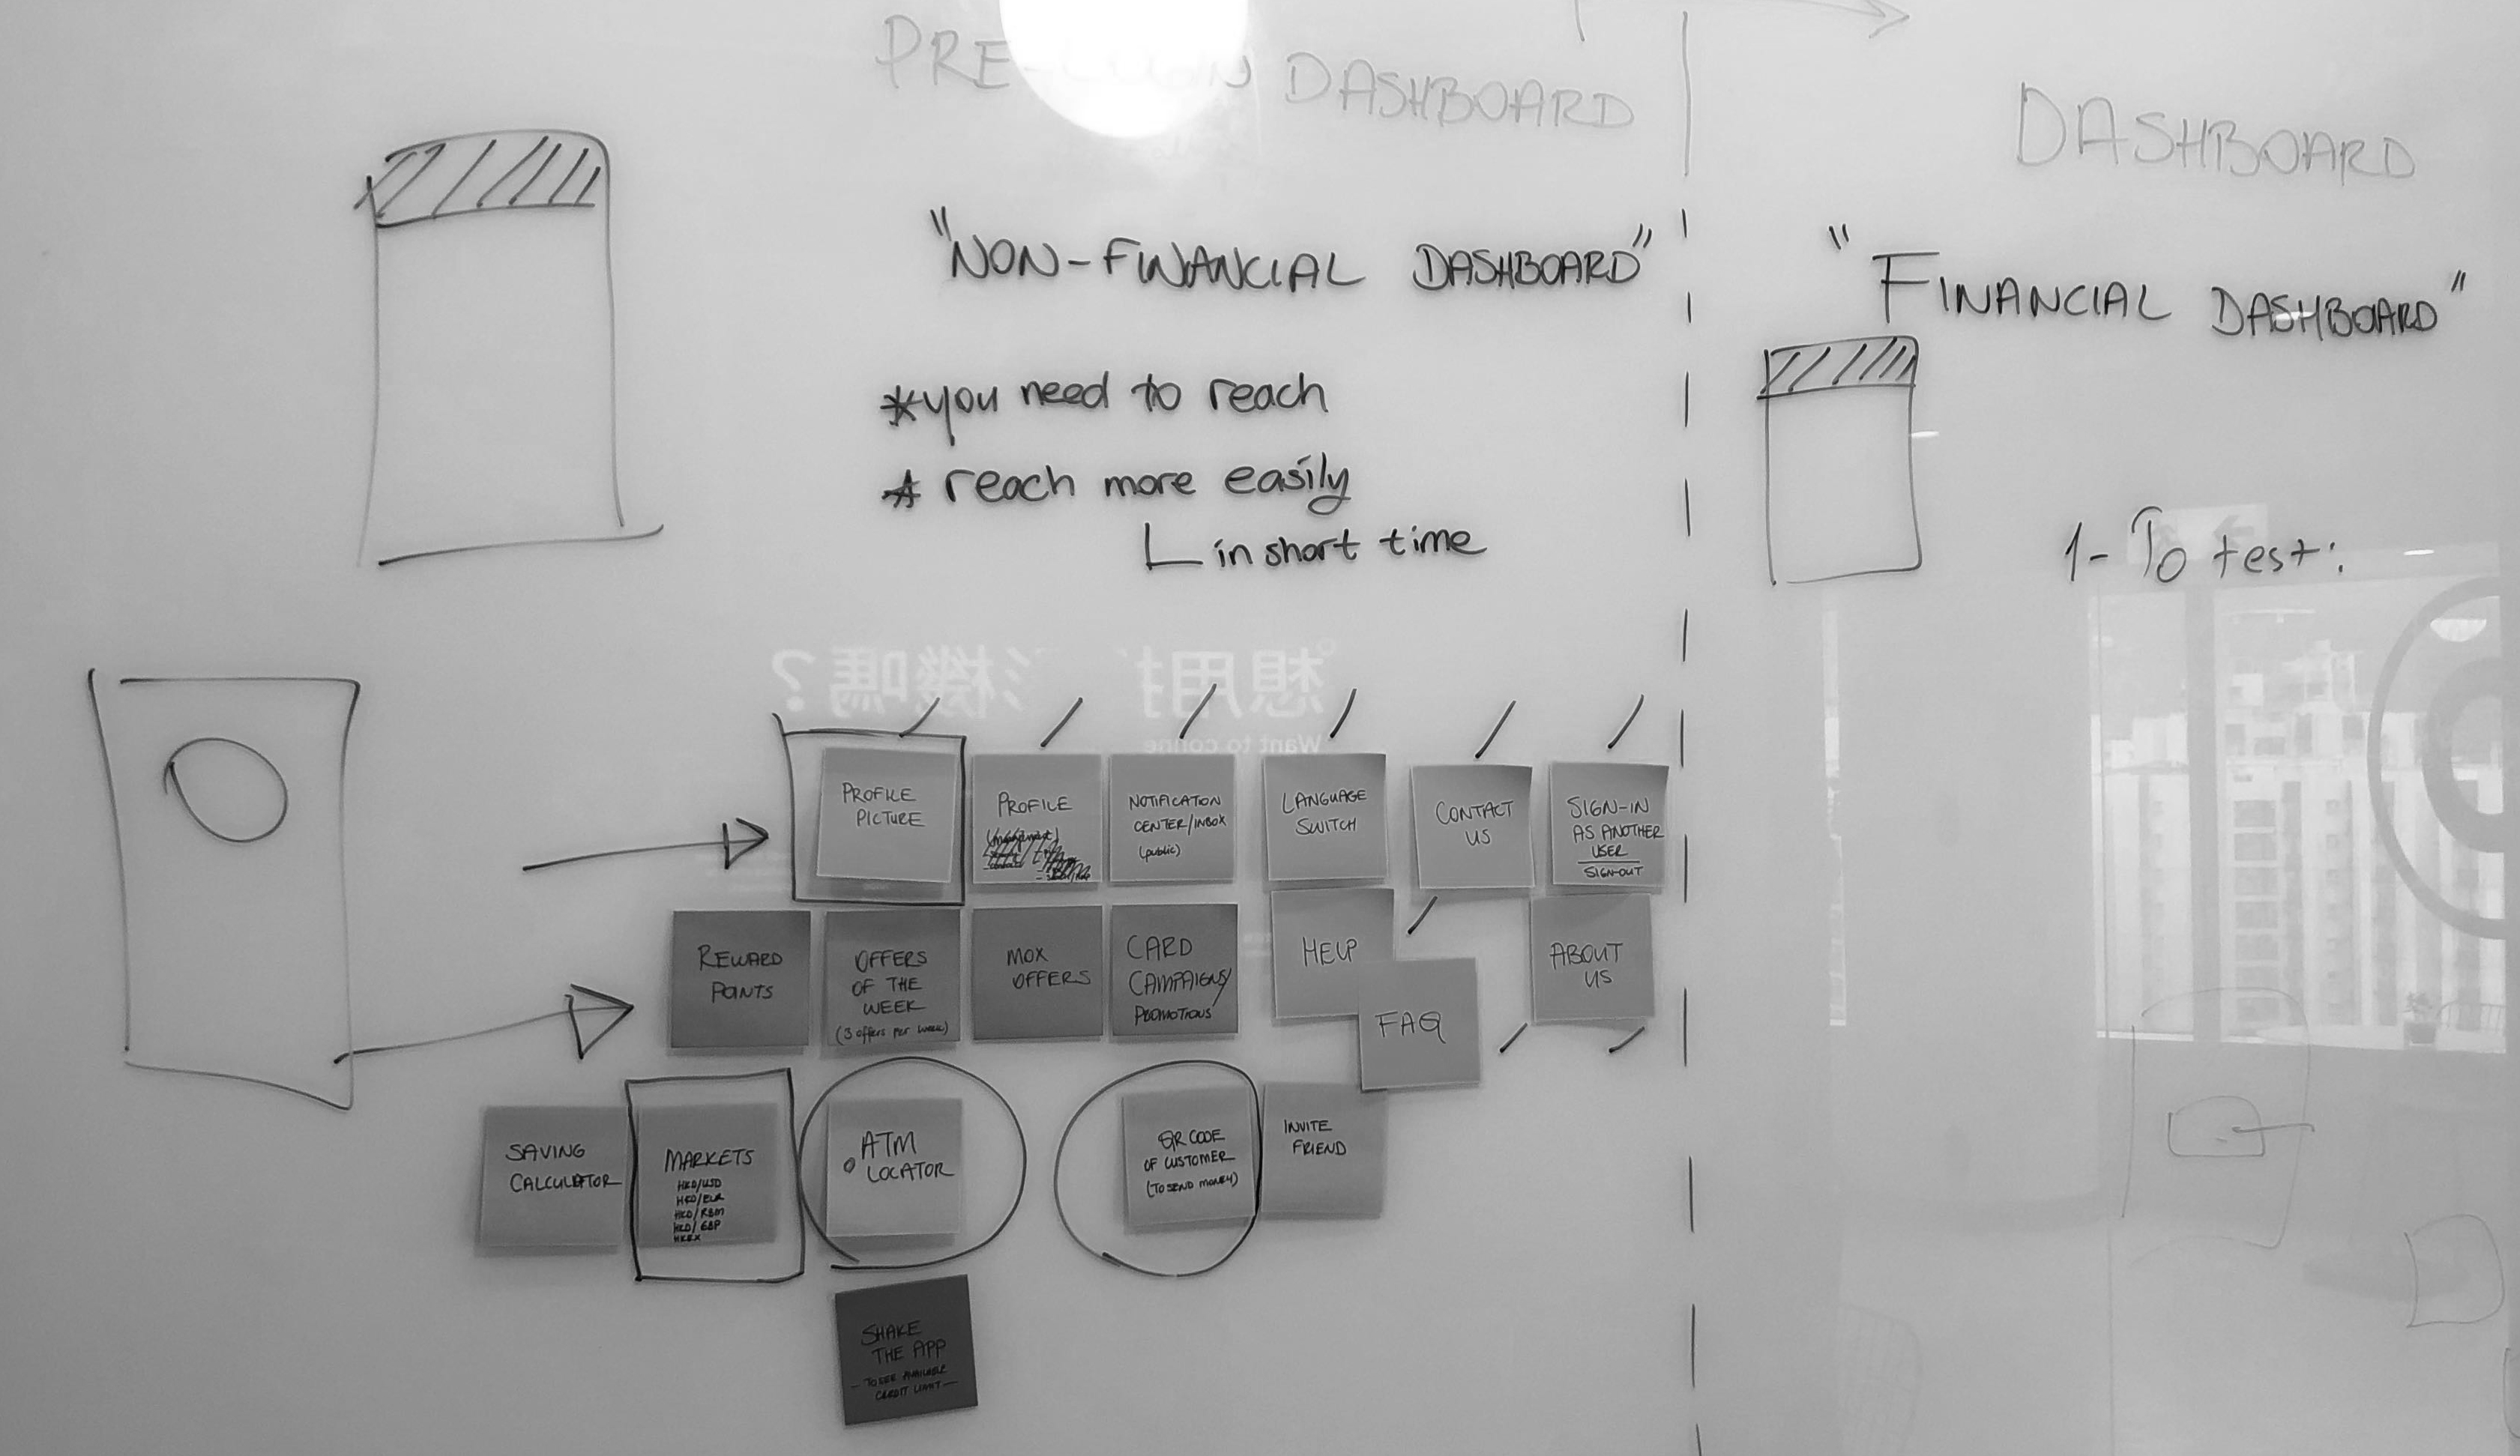 PRE-LOGIN DASHBOARD
DASHBOARD
"NON-FINANCIAL DASHBOARD"
"FINANCIAL DASHBOARD"
*you need to reach
* reach more easily
in short time
1- To test:
想用
機嗎？
Want to conne
PROFILE
PICTURE
PROFILE
NOTIFICATION
CENTER/INBOX
(public)
LANGUAGE
SWITCH
CONTACT
US
SIGN-IN
AS ANOTHER
USER
SIGN-OUT
REWARD
POINTS
OFFERS
OF THE
WEEK
(3 offers per week)
MOX
OFFERS
CARD
CAMPAIGNS/
PROMOTIONS
HELP
FAQ
ABOUT
US
SAVING
CALCULATOR
MARKETS
HKD/USD
HKD/EUR
HKD/RBM
HKD/GBP
HKEX
ATM
LOCATOR
QR CODE
OF CUSTOMER
(TO SEND MONEY)
INVITE
FRIEND
SHAKE
THE APP
- TO SEE AVAILABLE
CREDIT LIMIT -